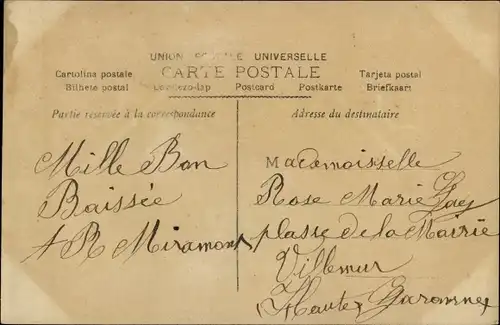 UNION POSTALE UNIVERSELLE
CARTE POSTALE
Cartolina postale
Tarjeta postal
Bilhete postal
Levelezo-lap
Postcard
Postkarte
Briefkaart
Partie réservée à la correspondance
Adresse du destinataire
Mille Bon
Baissée
A R Miramont
Mademoisselle
Rose Marie
plasse de la Mairie
Villemur
(Haute Garonne)